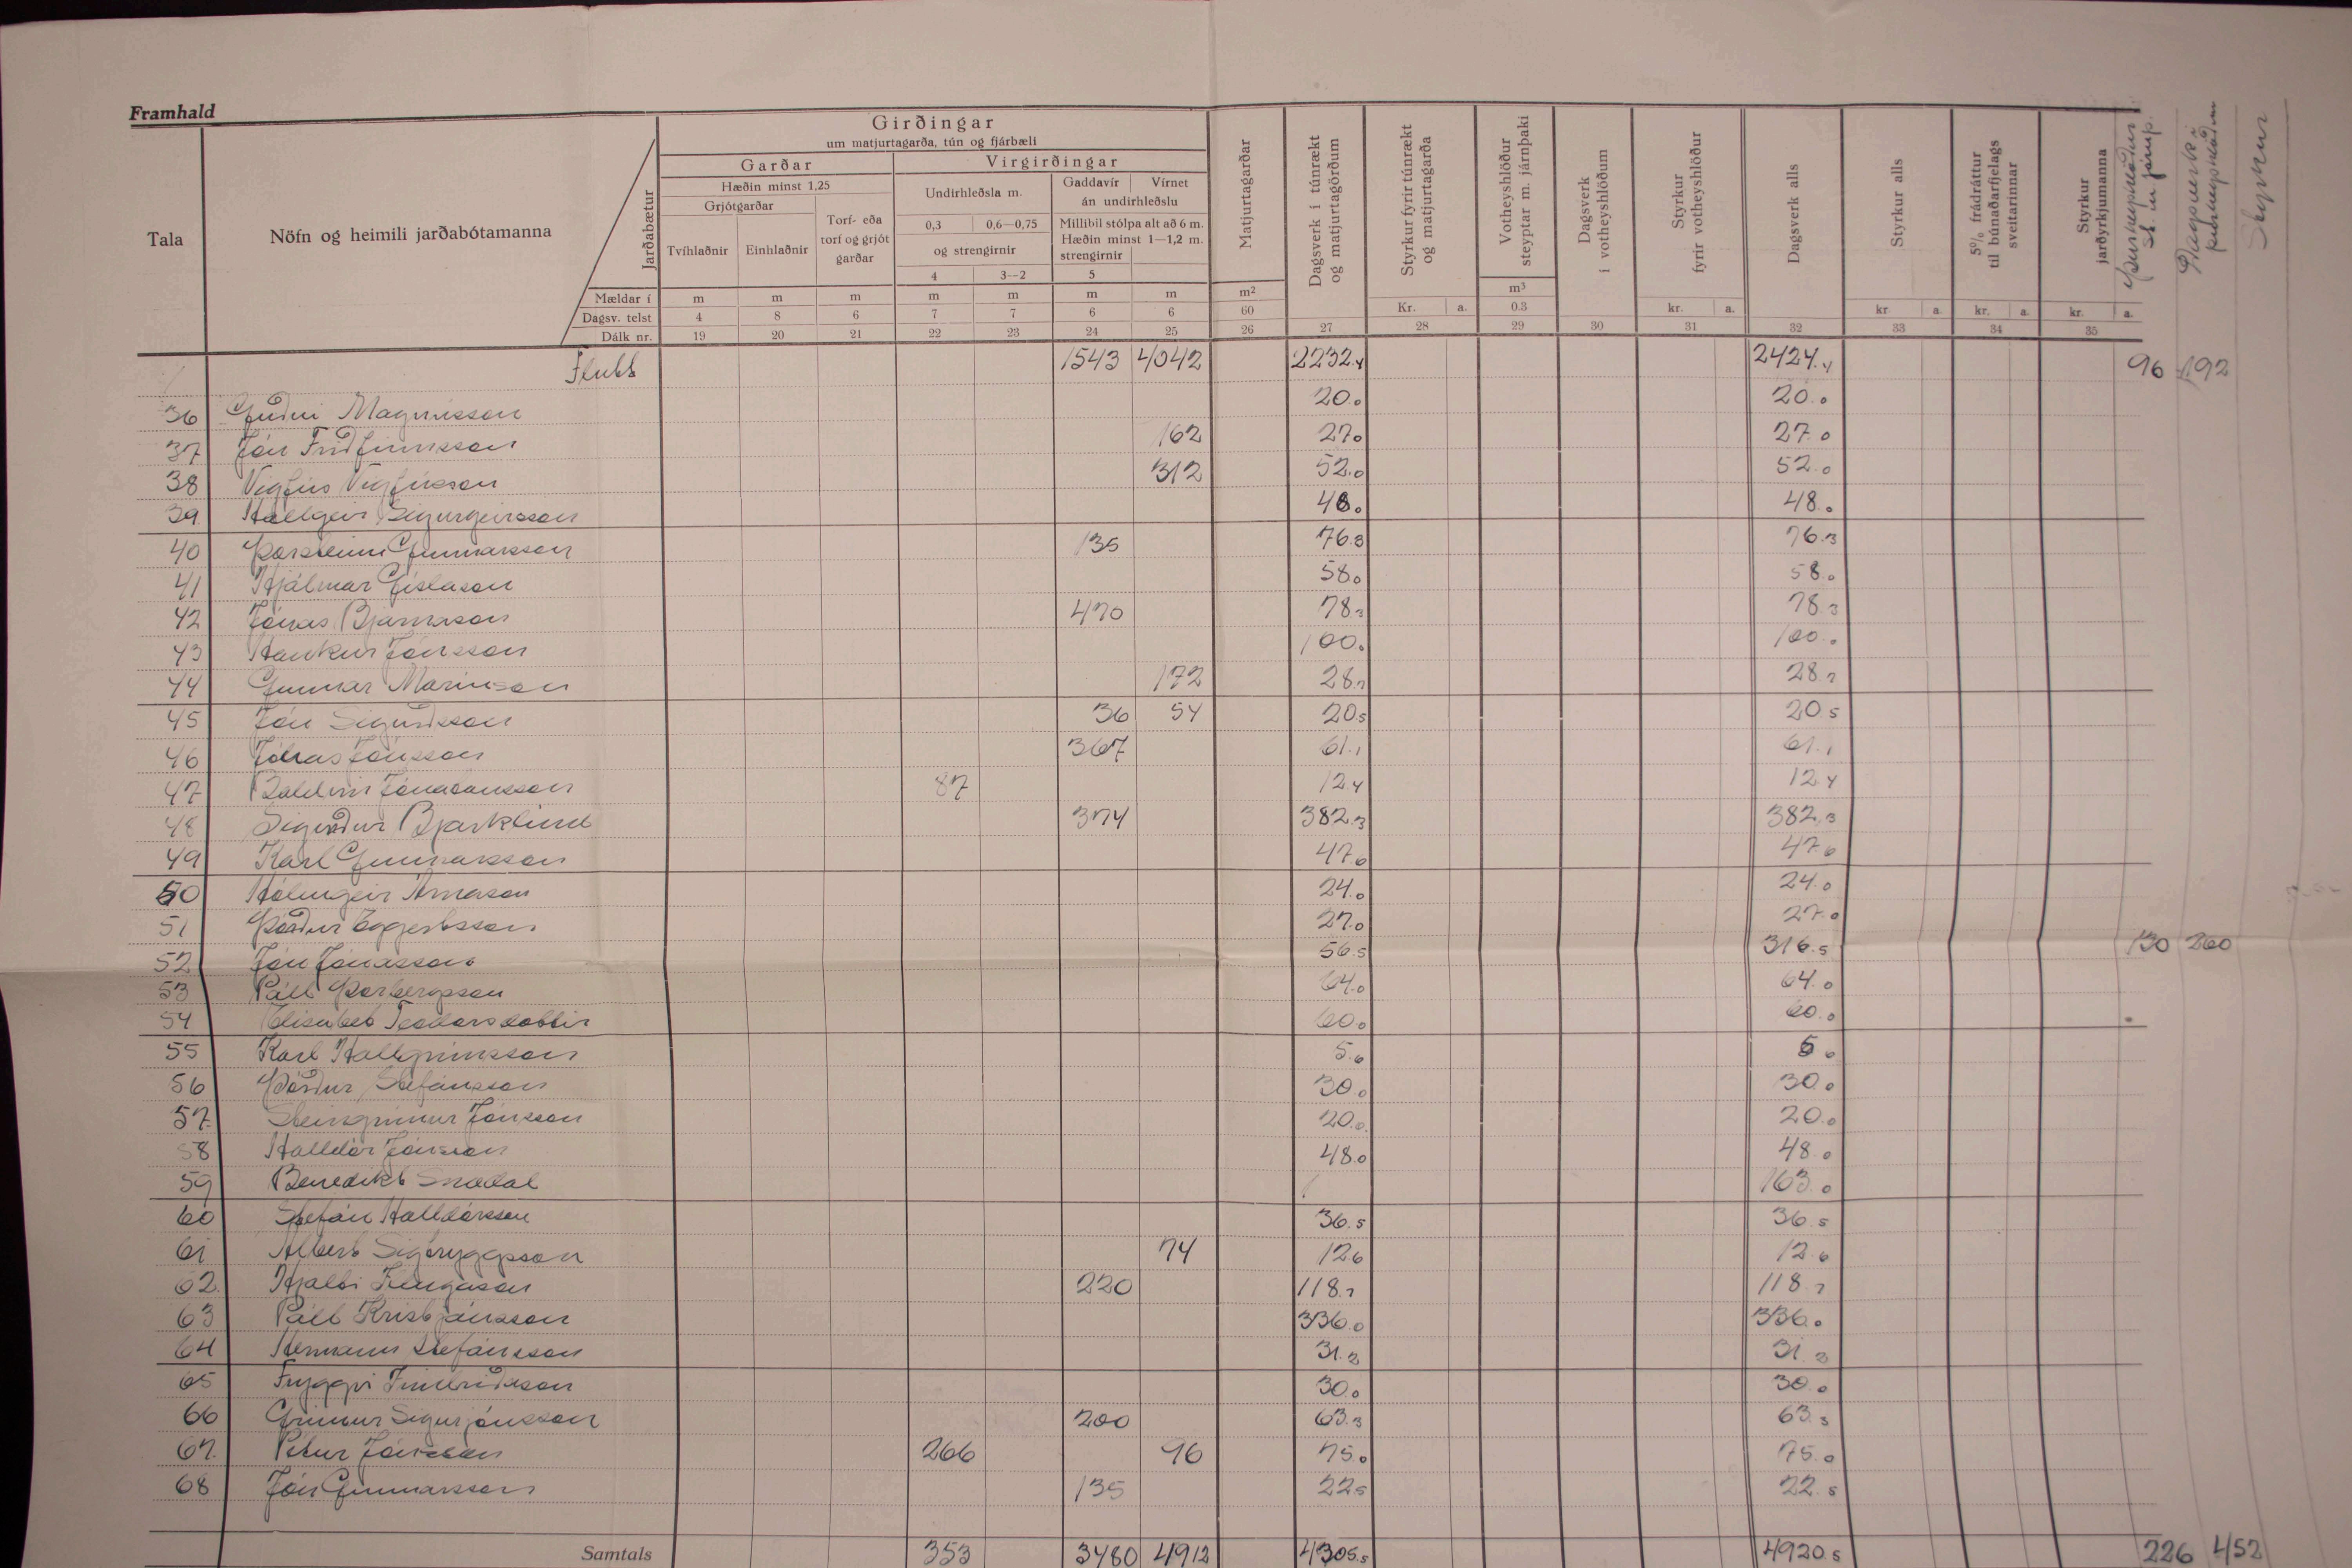 Framhald
Tala
Nöfn og heimili jarðabótamanna
Jarðabætur
Mældar í
Dagsv. telst
Dálk nr.
Girðingar
um matjurtagarða, tún og fjárbæli
Garðar
Hæðin minst 1,25
Grjótgarðar
Tvíhlaðnir
Einhlaðnir
Torf- eða torf og grjót garðar
Virgirðingar
Undirhleðsla m.
0,3 0,6—0,75
og strengirnir
4 3--2
Gaddavír Vírnet
án undirhleðslu
Millibil stólpa alt að 6 m.
Hæðin minst 1—1,2 m.
strengirnir
5
Matjurtagarðar
Dagsverk í túnrækt og matjurtagörðum
Styrkur fyrir túnrækt og matjurtagarða
Votheyshlöður steyptar m. járnþaki
Dagsverk í votheyshlöðum
Styrkur fyrir votheyshlöður
Dagsverk alls
Styrkur alls
5% frádráttur til búnaðarfjelags sveitarinnar
Styrkur jarðyrkjumanna
Þurheyshlöður st. m. járnþ.
Dagsverk í þurheyshlöðum
Styrkur
m m m m m m m m² Kr. a. m³ kr. a. kr. a. kr. a. kr. a.
4 8 6 7 7 6 6 60 0.3
19 20 21 22 23 24 25 26 27 28 29 30 31 32 33 34 35
Flutt 1543 4042 2232.4 2424.4 96 192
36 Guðni Magnússon 20.0 20.0
37 Jón Friðfinnsson 162 27.0 27.0
38 Vigfús Vigfússon 312 52.0 52.0
39 Hallgeir Sigurgeirsson 48.0 48.0
40 Þorsteinn Gunnarsson 135 76.3 76.3
41 Hjálmar Gíslason 58.0 58.0
42 Jónas Bjarnason 470 78.3 78.3
43 Haukur Jónsson 100.0 100.0
44 Gunnar Marinsson 172 28.7 28.7
45 Jón Sigurðsson 36 54 20.5 20.5
46 Jónas Jónsson 367 61.1 61.1
47 Baldvin Jónatansson 87 12.4 12.4
48 Sigurður Bjarklind 374 382.3 382.3
49 Karl Gunnarsson 47.6 47.6
50 Hólmgeir Árnason 24.0 24.0
51 Þórður Eggertsson 27.0 27.0
52 Jón Jónasson 56.5 316.5 130 260
53 Páll Þorbergsson 64.0 64.0
54 Elísabet Teodorsdóttir 60.0 60.0
55 Karl Hallgrímsson 5.6 5.6
56 Þórður Stefánsson 30.0 30.0
57. Steingrímur Jónsson 20.0 20.0
58 Halldór Jónsson 48.0 48.0
59 Benedikt Snædal 163.0
60 Stefán Halldórsson 36.5 36.5
61 Albert Sigtryggsson 74 12.6 12.6
62. Hjalti Illugason 220 118.7 118.7
63 Páll Kristjánsson 336.0 336.0
64 Hermann Stefánsson 31.3 31.3
65 Tryggvi Indriðason 30.0 30.0
66 Grímur Sigurjónsson 200 63.3 63.3
67. Pétur Jónsson 266 96 75.0 75.0
68 Jón Gunnarsson 135 22.5 22.5
Samtals 353 3480 4912 4305.5 4920.5 226 452